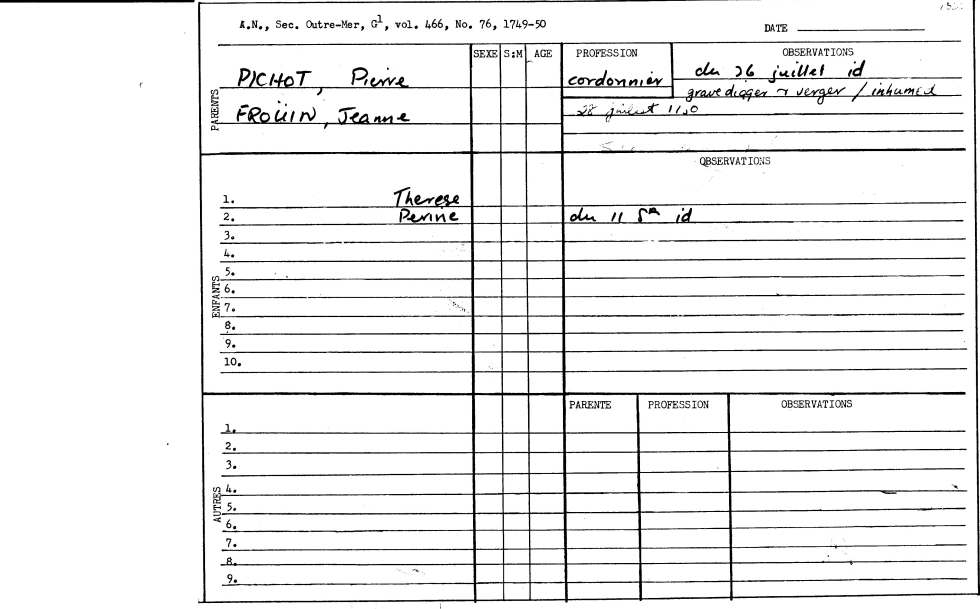 A.N., Sec. Outre-Mer, G1, vol. 466, No. 76, 1749-50
DATE
SEXE S:M AGE PROFESSION OBSERVATIONS
PARENTS
PICHOT, Pierre cordonnier du 26 juillet id
gravedigger & verger / inhumed
FROÜIN, Jeanne 28 juillet
OBSERVATIONS
ENFANTS
1. Therese
2. Perine du 11 id
3.
4.
5.
6.
7.
8.
9.
10.
PARENTE PROFESSION OBSERVATIONS
AUTRES
1.
2.
3.
4.
5.
6.
7.
8.
9.